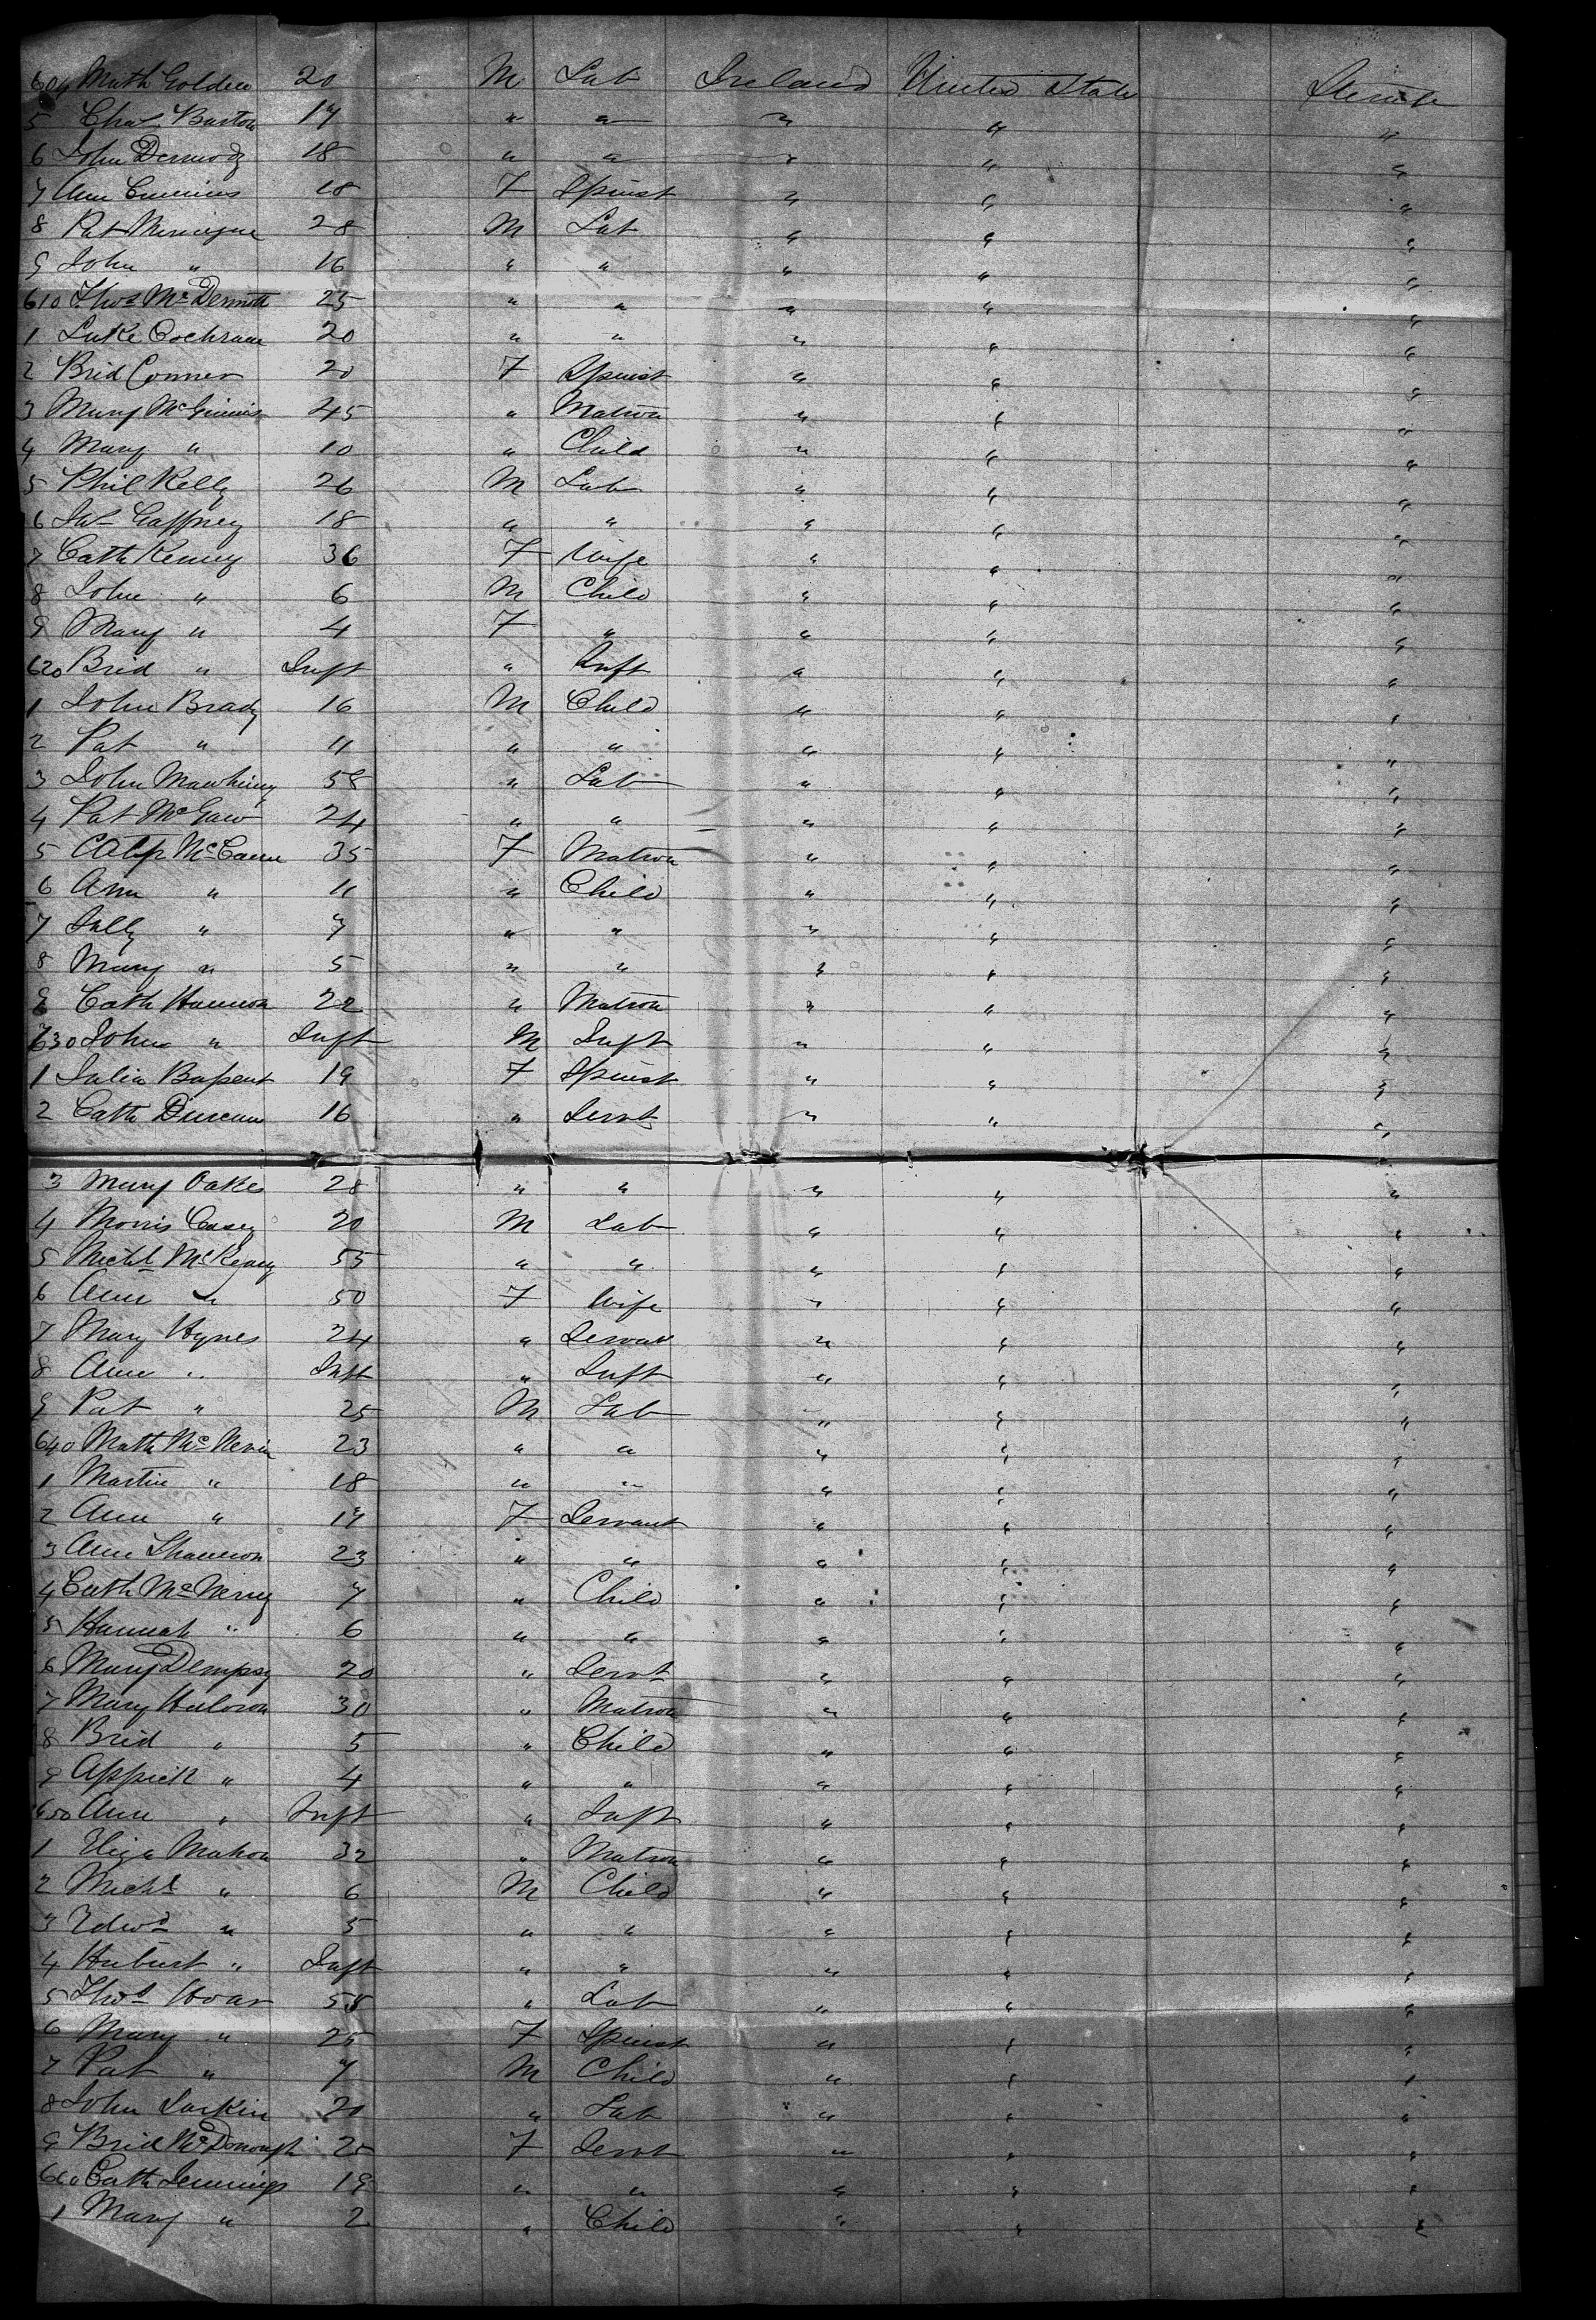 604 Math Golden 20 M Lab Ireland United State
5 Chas Burton 17 " " " " "
6 John Dermody 18 " " " " "
7 Ann 18 F Spinst " " "
8 Pat 28 M Lab " " "
9 John " 16 " " " " "
610 Thos McDermott 25 " " " " "
1 Luke Cochrane 20 " " " " "
2 Brid Conner 20 F Spinst " " "
3 Mary McGinnis 45 " Matron " " "
4 Mary " 10 " Child " " "
5 Phil Kelly 26 M Lab " " "
6 Gaffney 18 " " " " "
7 Cath Kenny 36 F Wife " " "
8 John " 6 M Child " " "
9 Mary " 4 F " " " "
620 Brid " Inft " Inft " " "
1 John Brady 16 M Child " " "
2 Pat " 11 " " " " "
3 John Mawhiney 58 " Lab " " "
4 Pat McGaw 24 " " " " "
5 35 F Matron " " "
6 Ann " 11 " Child " " "
7 Sally " 7 " " " " "
8 Mary " 5 " " " " "
9 Cath Hannon 22 " Matron " " "
630 John " Inft M Inft " " "
1 Julia 19 F Spinst " " "
2 Cath Duncan 16 " Servt " " "
3 Mary Oakes 28 " " " " "
4 Morris Casey 20 M Lab " " "
5 Michl 55 " " " " "
6 Ann " 50 F Wife " " "
7 Mary Hynes 24 " Servant " " "
8 Ann " Inft " Inft " " "
9 Pat " 25 M Lab " " "
640 Math McNevin 23 " " " " "
1 Martin " 18 " " " " "
2 Ann " 17 F Servant " " "
3 Ann Shannon 23 " " " " "
4 Cath McNerny 7 " Child " " "
5 Hannah " 6 " " " " "
6 Mary Dempsy 20 " Servt " " "
7 Mary Haloron 30 " Matron " " "
8 Brid " 5 " Child " " "
9 " 4 " " " " "
650 Ann " Inft " Inft " " "
1 Eliza Mahon 32 " Matron " " "
2 Michl " 6 M Child " " "
3 Edwd " 5 " " " " "
4 Huburt " Inft " " " " "
5 Thos Hoar 58 " Lab " " "
6 Mary " 25 F Spinst " " "
7 Pat " 7 M Child " " "
8 John Larkin 20 " Lab " " "
9 Brid McDonough 25 F Servt " " "
660 Cath Jennings 19 " " " " "
1 Mary " 2 " Child " " "